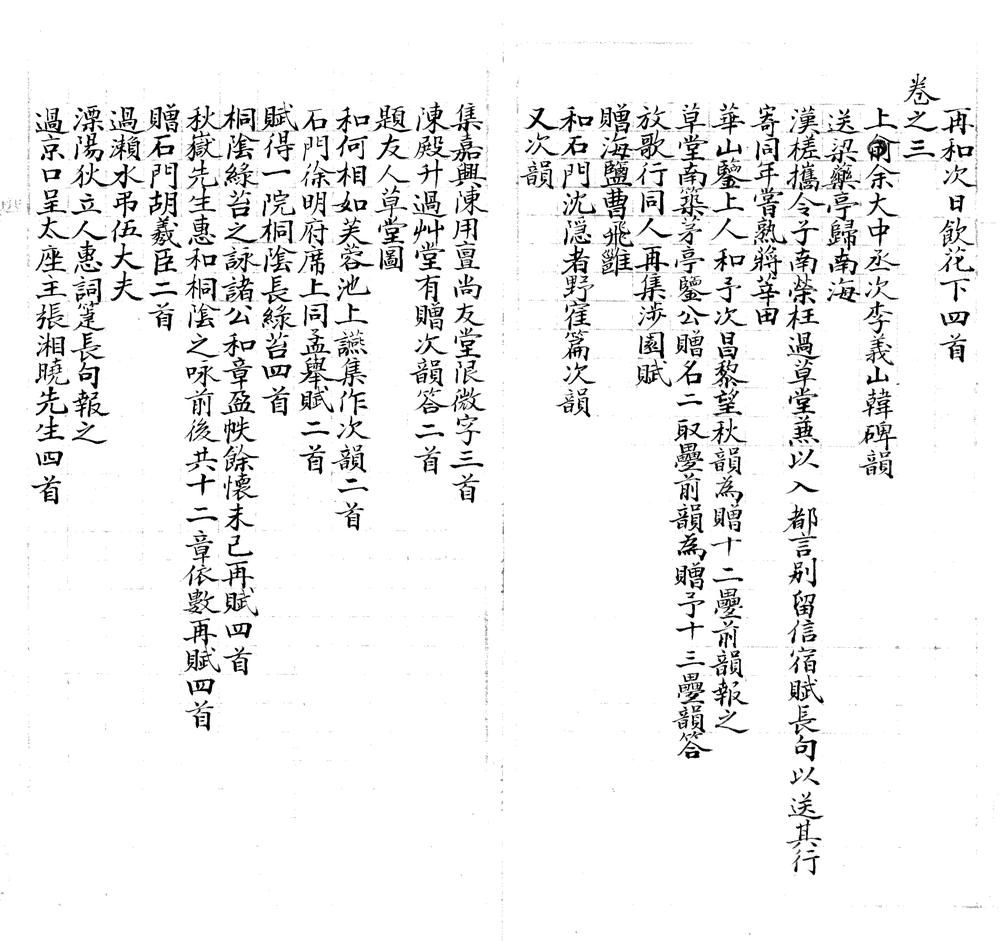 再和次日飲花下四首
卷之三
上余大中丞次李義山韓碑韻
送梁藥亭歸南海
漢槎攜令子南榮枉過草堂兼以入都言别留信宿賦長句以送其行
寄同年嘗熟蔣莘田
華山鑒上人和予次昌黎望秋韻為贈十二疊前韻報之
草堂南築茅亭鑒公贈名二取疊前韻為贈予十三疊韻答
放歌行同人再集涉園賦
贈海鹽曹飛雖
和石門沈隱者野寉篇次韻
又次韻
集嘉興陳用亶尚友堂限微字三首
陳殿升過艸堂有贈次韻答二首
題友人草堂圖
和何相如芙蓉池上讌集作次韻二首
石門徐明府席上同孟舉賦二首
賦得一院桐陰長綠苔四首
桐陰綠苔之詠諸公和章盈帙餘懷未已再賦四首
秋嶽先生惠和桐陰之咏前後共十二章依數再賦四首
贈石門胡羲臣二首
過瀨水弔伍大夫
溧陽狄立人惠詞箑長句報之
過京口呈太座王張湘曉先生四首